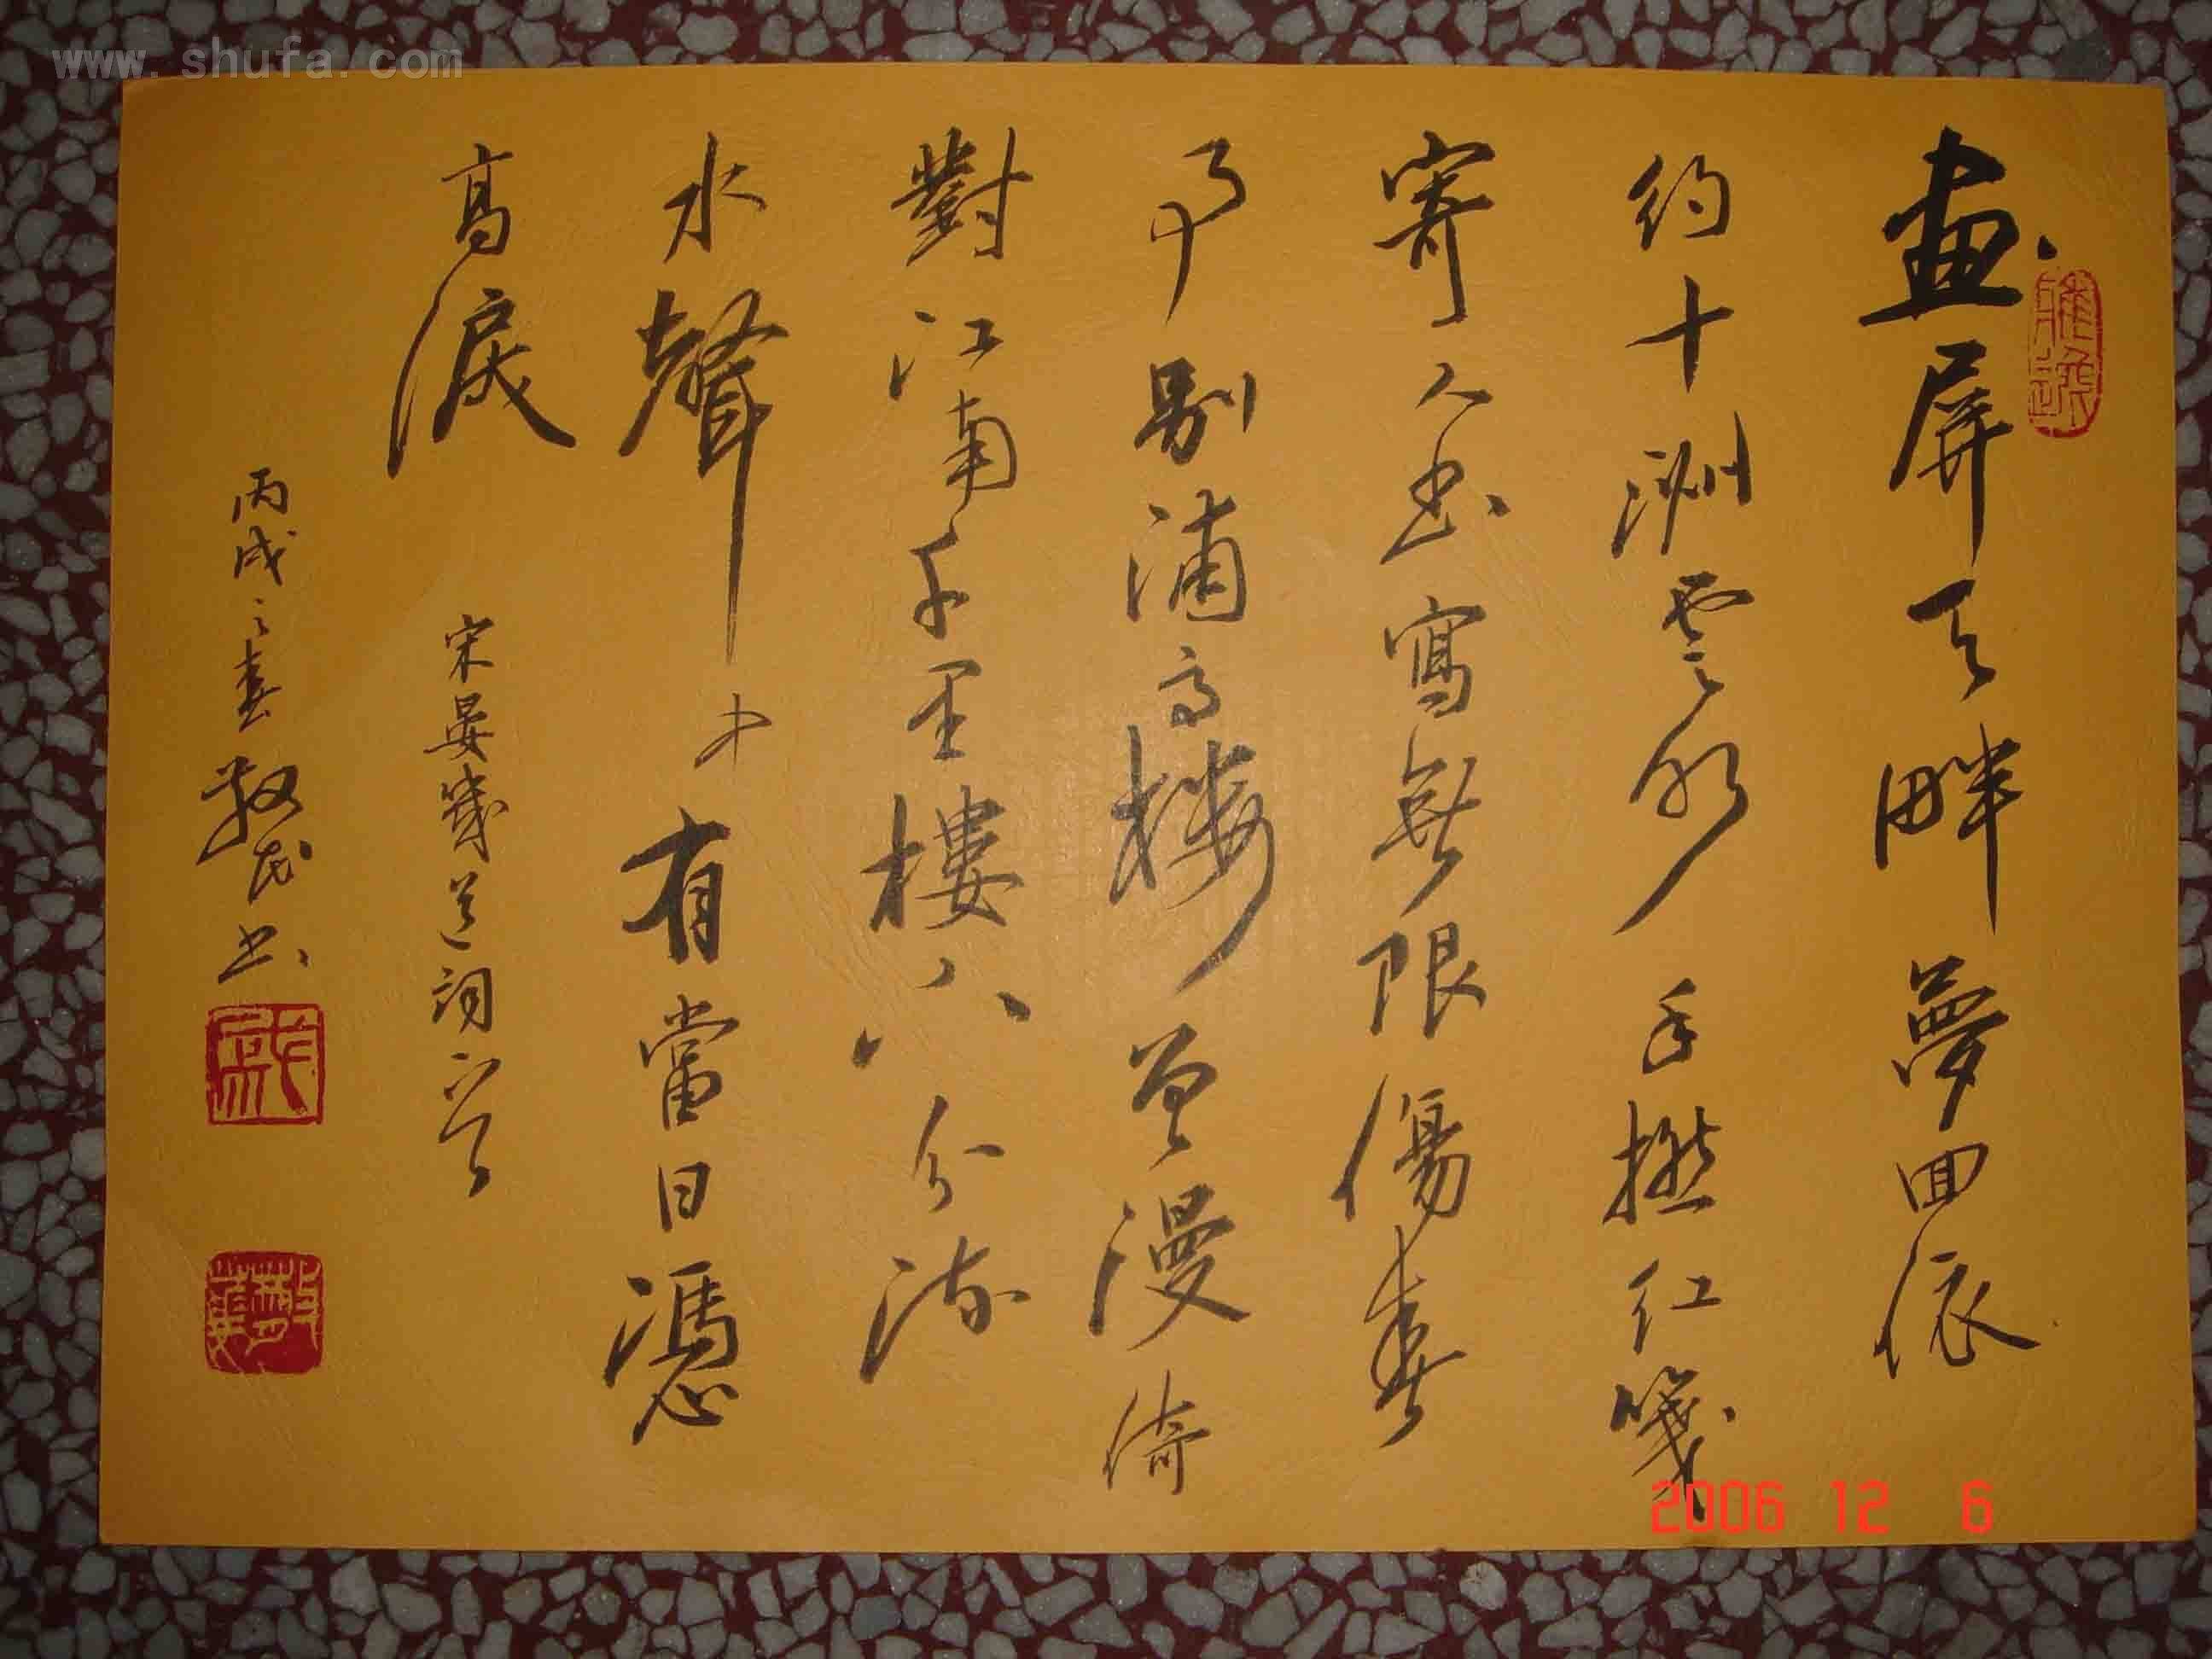 畫屏天畔夢回依
约十洲雲水手撚红笺
寄人书寫無限傷春
事别浦高楼曾漫倚
對江南千里樓下分流
水聲中有當日憑
高淚
宋晏幾道詞一首
丙戌之春
书
www.shufa.com
2006 12 6